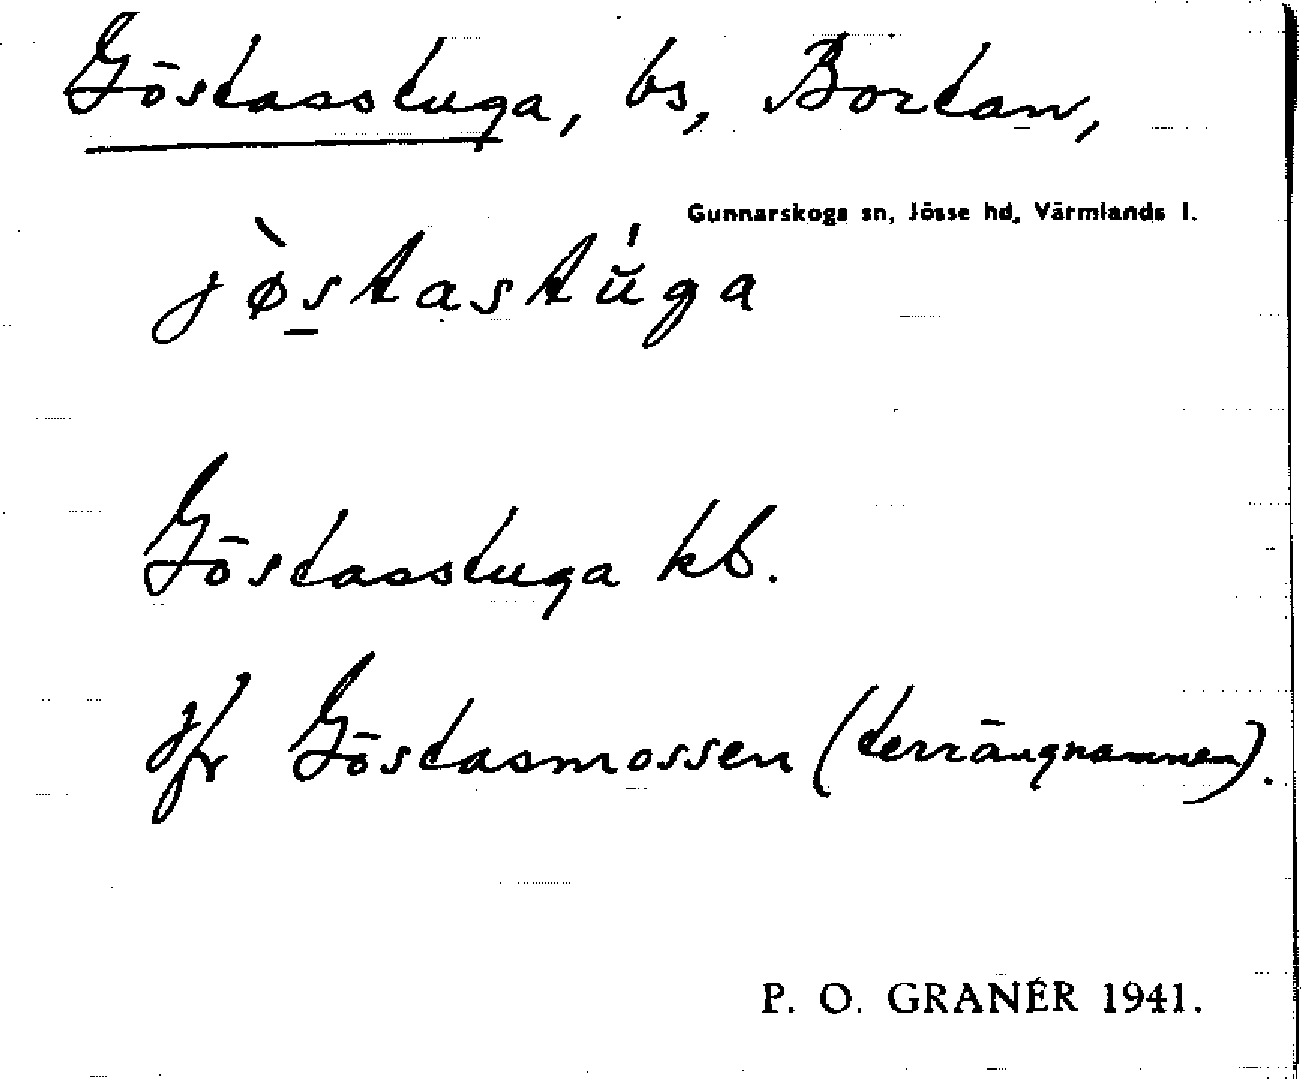 Göstasstuga, bs, Bortan,
Gunnarskogs sn, Jösse hd, Värmlands l.
jø̀s̠tastŭ́ga
Göstasstuga kb.
Jfr Göstasmossen (terrängnamnen).
P. O. GRANÉR 1941.